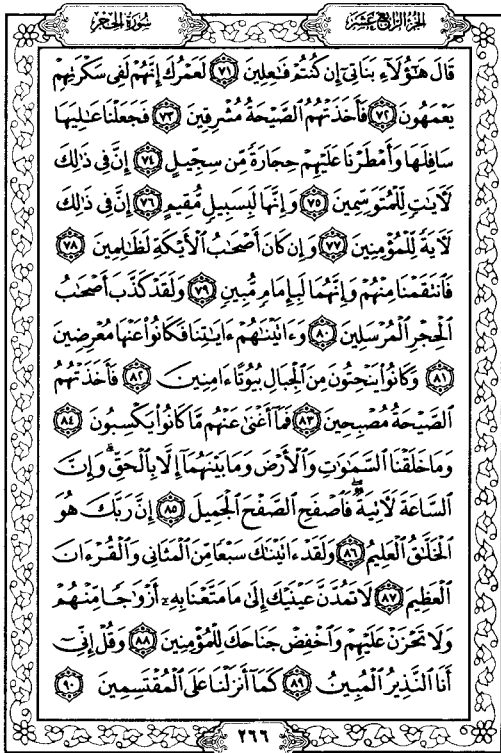 سورة الحجر
الجزء الرابع عشر
قَالَ هَٰٓؤُلَآءِ بَنَاتِىٓ إِن كُنتُمْ فَٰعِلِينَ ﴿٧١﴾ لَعَمْرُكَ إِنَّهُمْ لَفِى سَكْرَتِهِمْ
يَعْمَهُونَ ﴿٧٢﴾ فَأَخَذَتْهُمُ ٱلصَّيْحَةُ مُشْرِقِينَ ﴿٧٣﴾ فَجَعَلْنَا عَٰلِيَهَا
سَافِلَهَا وَأَمْطَرْنَا عَلَيْهِمْ حِجَارَةً مِّن سِجِّيلٍ ﴿٧٤﴾ إِنَّ فِى ذَٰلِكَ
لَءَايَٰتٍ لِّلْمُتَوَسِّمِينَ ﴿٧٥﴾ وَإِنَّهَا لَبِسَبِيلٍ مُّقِيمٍ ﴿٧٦﴾ إِنَّ فِى ذَٰلِكَ
لَءَايَةً لِّلْمُؤْمِنِينَ ﴿٧٧﴾ وَإِن كَانَ أَصْحَٰبُ ٱلْأَيْكَةِ لَظَٰلِمِينَ ﴿٧٨﴾
فَٱنتَقَمْنَا مِنْهُمْ وَإِنَّهُمَا لَبِإِمَامٍ مُّبِينٍ ﴿٧٩﴾ وَلَقَدْ كَذَّبَ أَصْحَٰبُ
ٱلْحِجْرِ ٱلْمُرْسَلِينَ ﴿٨٠﴾ وَءَاتَيْنَٰهُمْ ءَايَٰتِنَا فَكَانُوا۟ عَنْهَا مُعْرِضِينَ
﴿٨١﴾ وَكَانُوا۟ يَنْحِتُونَ مِنَ ٱلْجِبَالِ بُيُوتًا ءَامِنِينَ ﴿٨٢﴾ فَأَخَذَتْهُمُ
ٱلصَّيْحَةُ مُصْبِحِينَ ﴿٨٣﴾ فَمَآ أَغْنَىٰ عَنْهُم مَّا كَانُوا۟ يَكْسِبُونَ ﴿٨٤﴾
وَمَا خَلَقْنَا ٱلسَّمَٰوَٰتِ وَٱلْأَرْضَ وَمَا بَيْنَهُمَآ إِلَّا بِٱلْحَقِّ ۗ وَإِنَّ
ٱلسَّاعَةَ لَءَاتِيَةٌ ۖ فَٱصْفَحِ ٱلصَّفْحَ ٱلْجَمِيلَ ﴿٨٥﴾ إِنَّ رَبَّكَ هُوَ
ٱلْخَلَّٰقُ ٱلْعَلِيمُ ﴿٨٦﴾ وَلَقَدْ ءَاتَيْنَٰكَ سَبْعًا مِّنَ ٱلْمَثَانِى وَٱلْقُرْءَانَ
ٱلْعَظِيمَ ﴿٨٧﴾ لَا تَمُدَّنَّ عَيْنَيْكَ إِلَىٰ مَا مَتَّعْنَا بِهِۦٓ أَزْوَٰجًا مِّنْهُمْ
وَلَا تَحْزَنْ عَلَيْهِمْ وَٱخْفِضْ جَنَاحَكَ لِلْمُؤْمِنِينَ ﴿٨٨﴾ وَقُلْ إِنِّىٓ
أَنَا ٱلنَّذِيرُ ٱلْمُبِينُ ﴿٨٩﴾ كَمَآ أَنزَلْنَا عَلَى ٱلْمُقْتَسِمِينَ ﴿٩٠﴾
٢٦٦